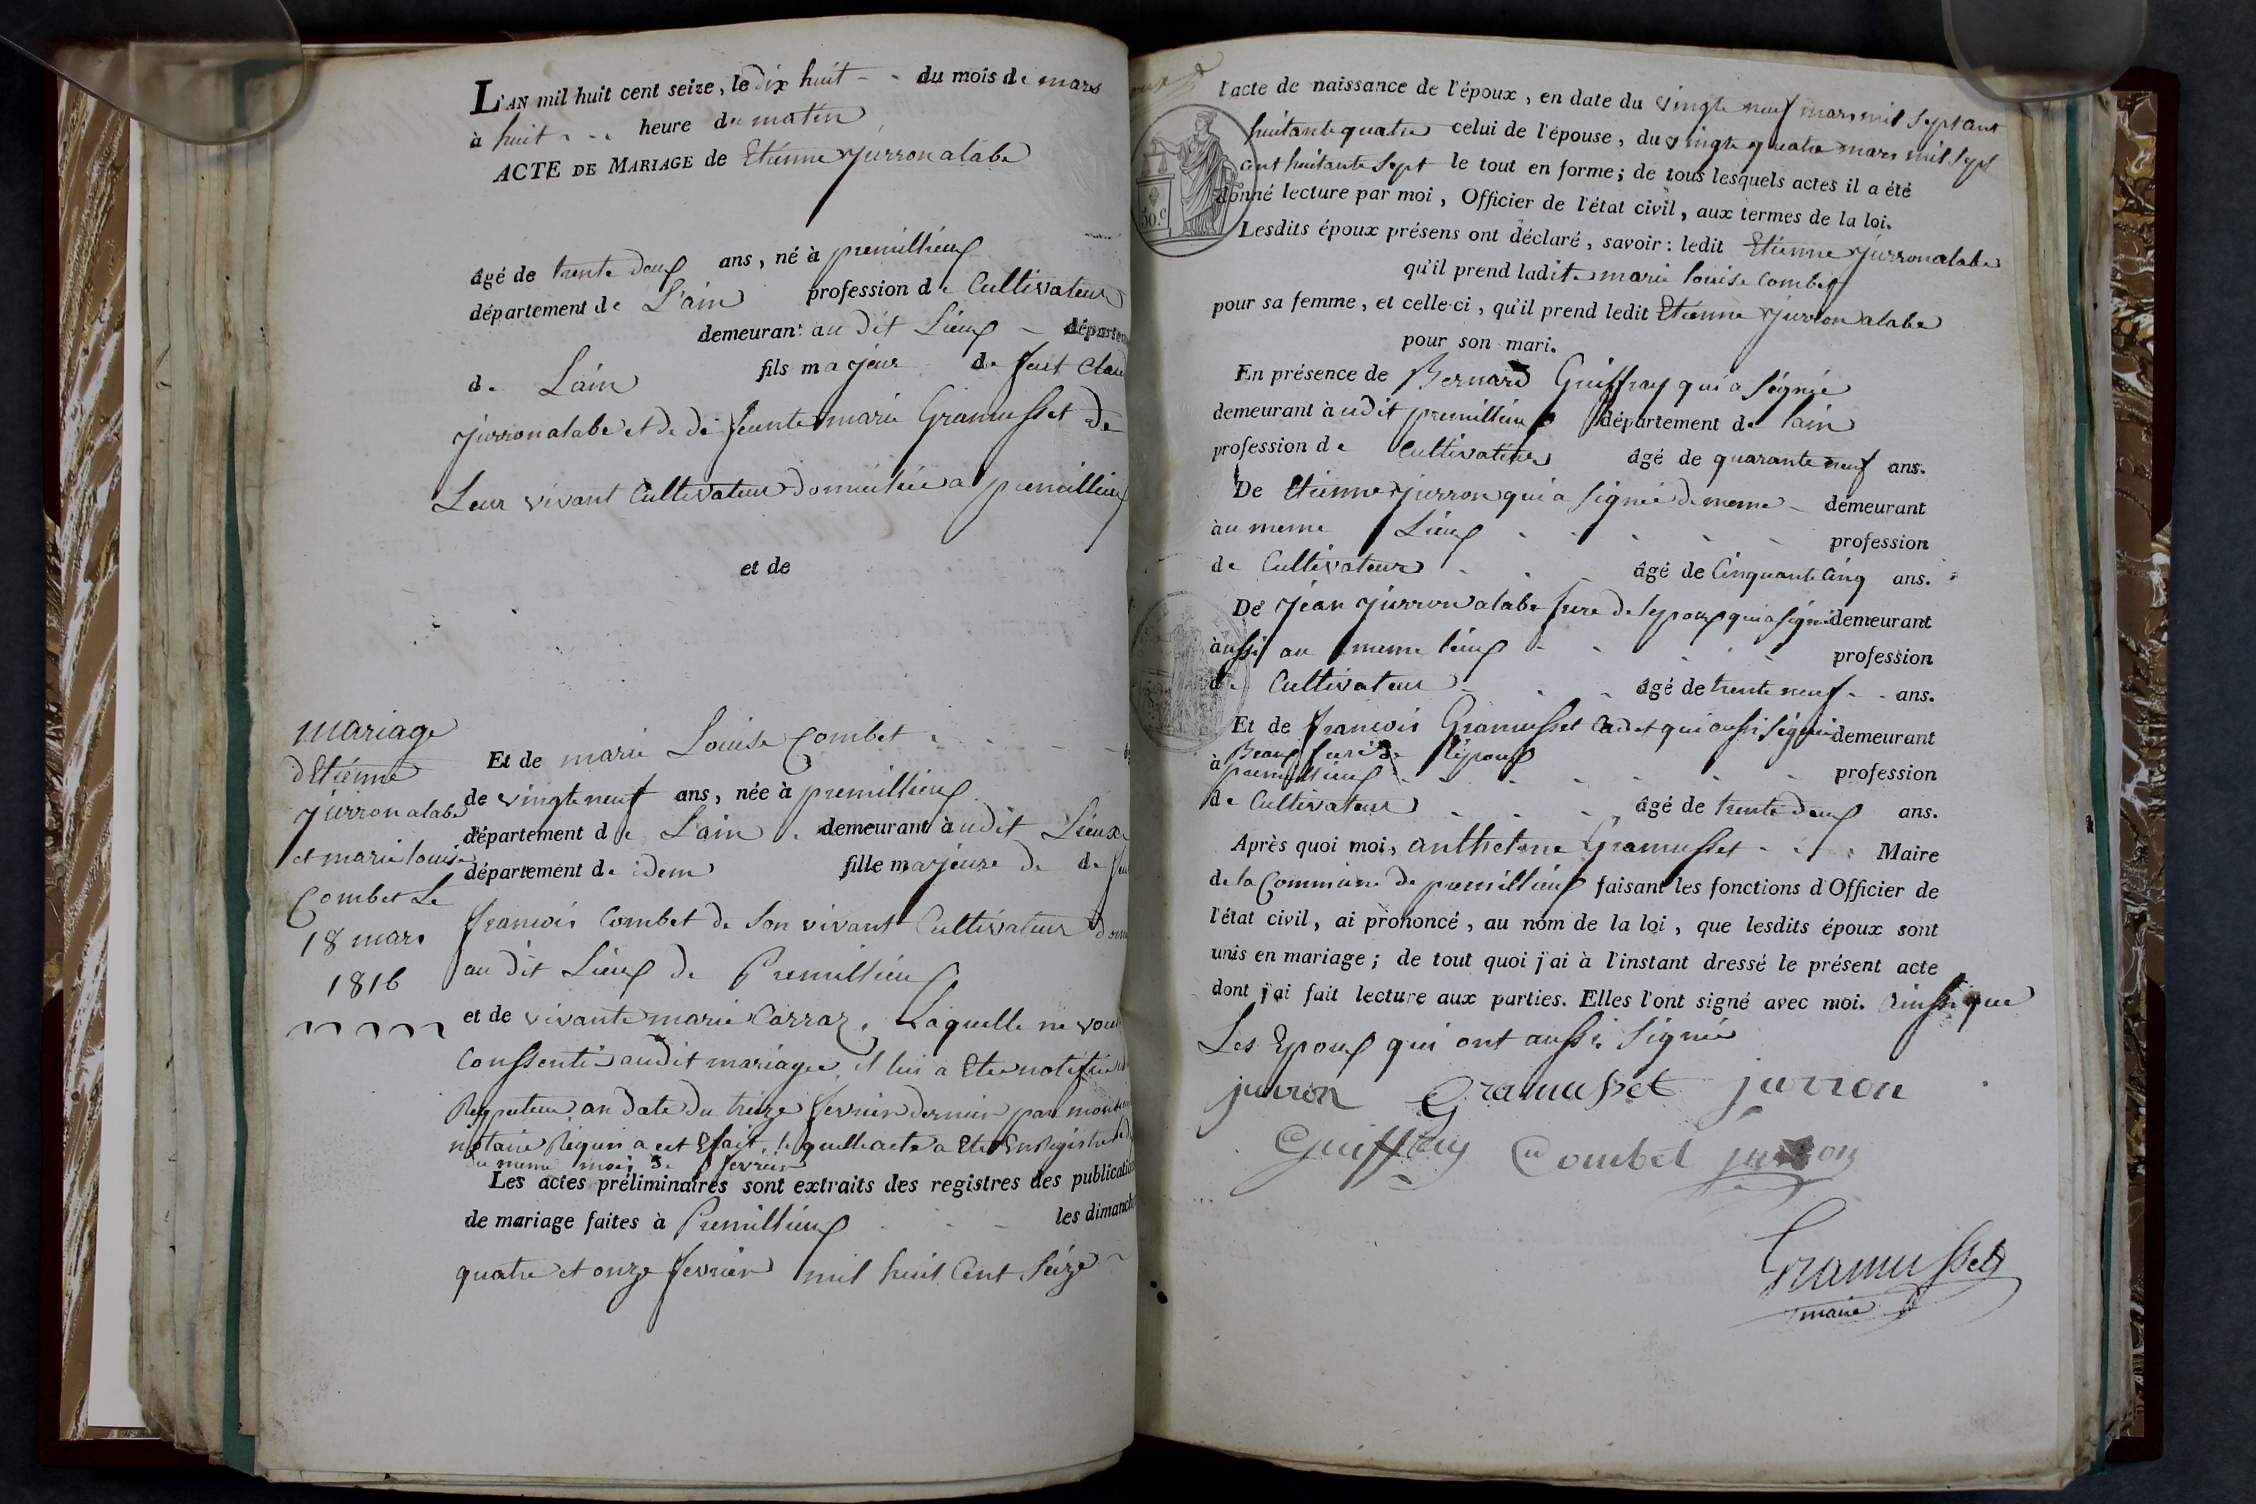 L'AN mil huit cent seize, le dix huit - - du mois de mars
à huit - - heure du matin
ACTE DE MARIAGE de Etienne Jurron alabe
âgé de trente deux ans, né à premillieux
département de L'ain profession de Cultivateur
demeurant au dit Lieux - départem
de Lain fils majeur de feut Claud
Jurron alabe et de de feunte marie Gramusset de
Leur vivant Cultivateur domiciliée a premillieux
et de
mariage
d'Etienne
Jurron alabe
et marie louise
Combet Le
18 mars
1816
Et de marie Louise Combet
de vingt neuf ans, née à premillieux
département de Lain demeurant audit Lieux
département de idem fille majeure de de feu
francois Combet de Son vivant Cultivateur dom
au dit Lieux de Premillieux
et de vivante marie Carraz, Laquelle ne voul
Conssentir audit mariage, il lui a Ete notifié
Respecteux an date du treize fevrier dernier par
notaire Requi a cet Efait, le quelle acte a Ete Enregistre
du meme mois de fevrier
Les actes préliminaires sont extraits des registres des publication
de mariage faites à Premillieux les dimanch
quatre et onze fevrier mil huit Cent Seize
l'acte de naissance de l'époux, en date du vingte neuf mars mil Sept
huitante quatre celui de l'épouse, du vingte quatre mars mil Sept
cent huitante Sept le tout en forme; de tous lesquels actes il a été
donné lecture par moi, Officier de l'état civil, aux termes de la loi.
30.c
Lesdits époux présens ont déclaré, savoir: ledit Etienne Jurron alabe
qu'il prend ladite marie louise Combet
pour sa femme, et celle-ci, qu'il prend ledit Etienne Jurron alabe
pour son mari.
En présence de Bernard Guiffray qui a Signée
demeurant à udit premillieux département de lain
profession de Cultivateur âgé de quarante neuf ans.
De Etienne Jurron qui a Signée de meme - demeurant
àu meme Lieux profession
de Cultivateur âgé de Cinquante Cinq ans.
De Jean Jurron alabe frere de lepoux qui a Signé demeurant
àussi au meme lieux profession
de Cultivateur âgé de trente neuf - - ans.
Et de francois Gramusset Cadet qui aussi Signée demeurant
Beaux frere de lépoux
à premillieux profession
de Cultivateur âgé de trente deux ans.
Après quoi moi, anthelme Gramusset Maire
de la Commune de premillieux faisant les fonctions d'Officier de
l'état civil, ai prononcé, au nom de la loi, que lesdits époux sont
unis en mariage; de tout quoi j'ai à l'instant dressé le présent acte
dont j'ai fait lecture aux parties. Elles l'ont signé avec moi. Ainssi que
Les Epoux qui ont aussi Signée
jurron Gramusset jurron
Guiffray Combet jurron
Gramusset
maire